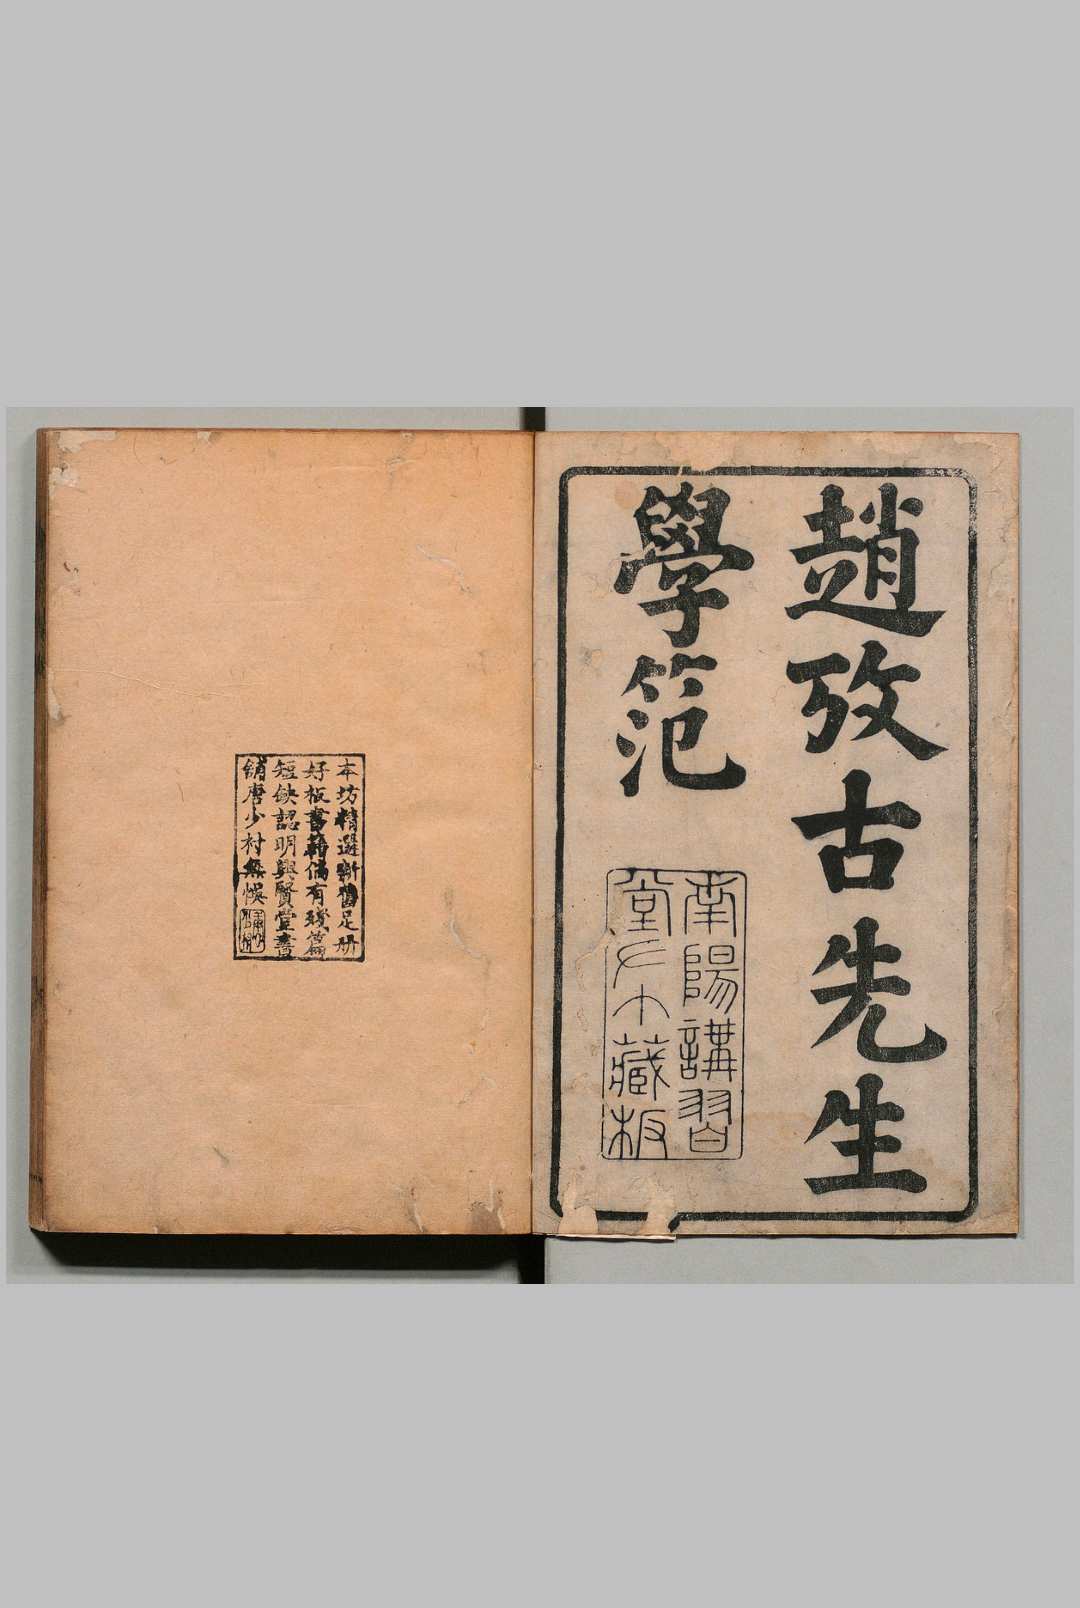 趙攷古先生
學范
南陽講習
堂𠂆木藏板
本坊精選新舊足册
好板書籍倘有殘篇
短缺認明興賢堂書
鋪唐少村無悞